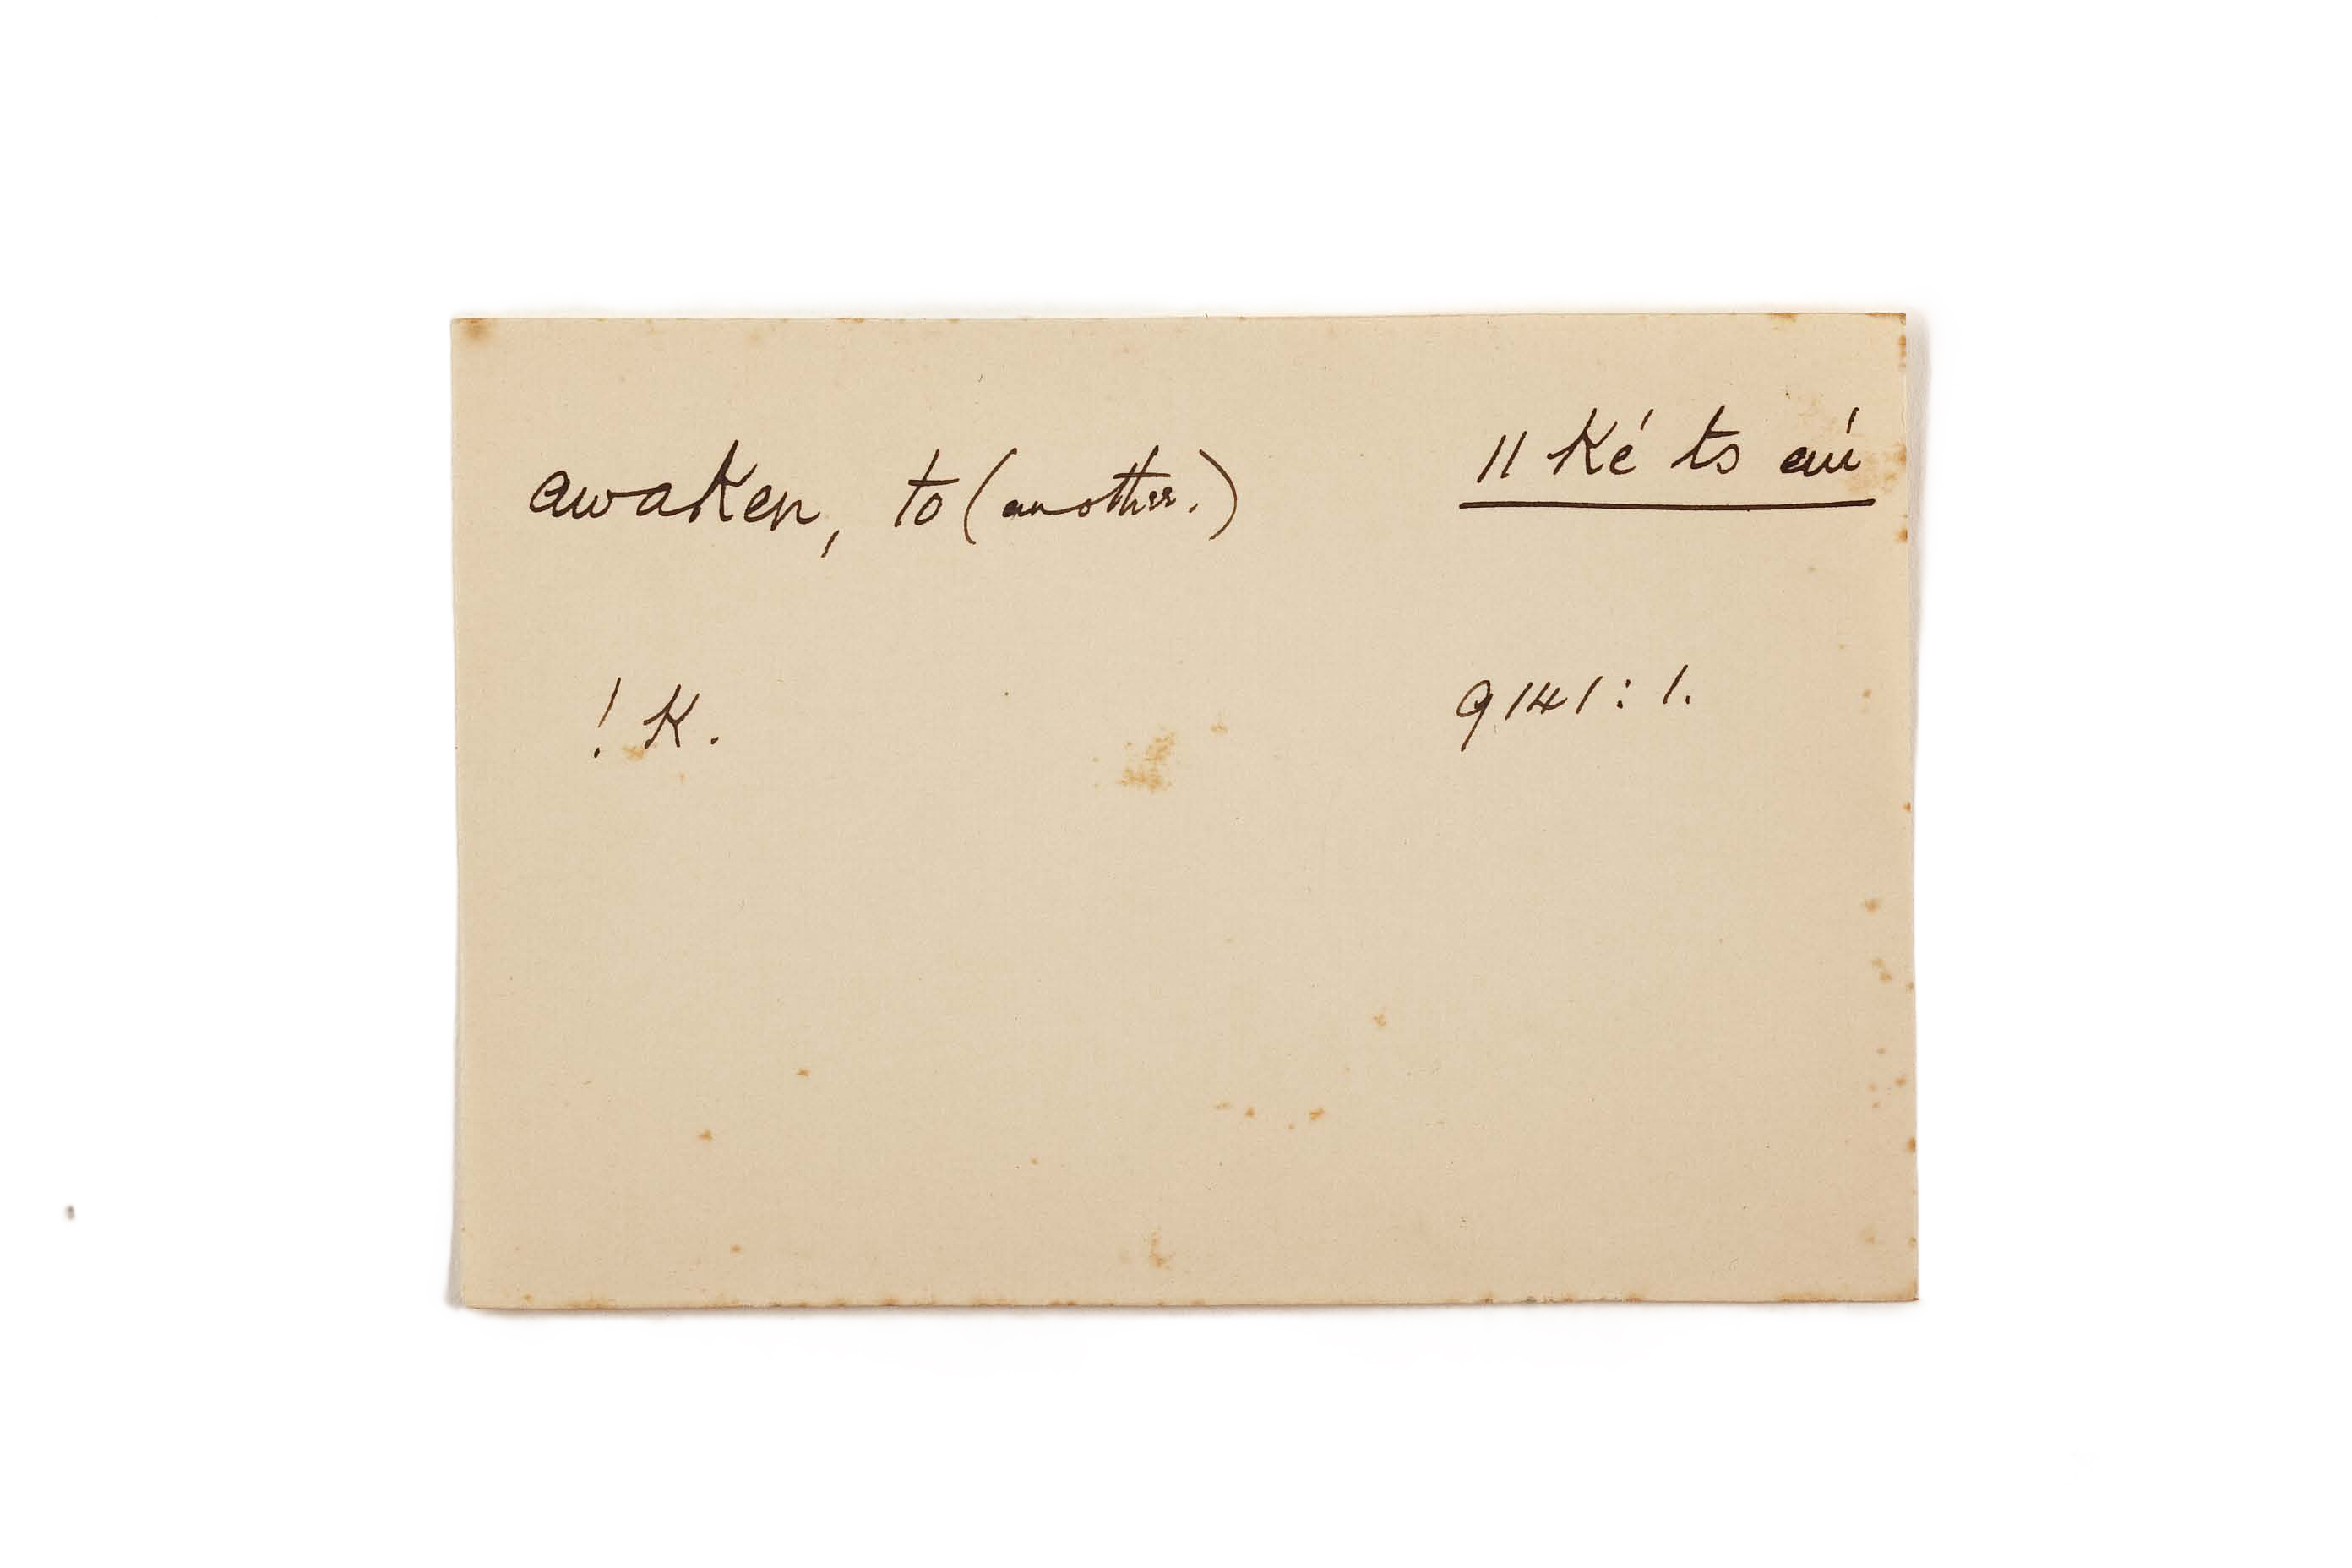 awaken, to (another.) || ké ts aú
! K. 9141 : 1.